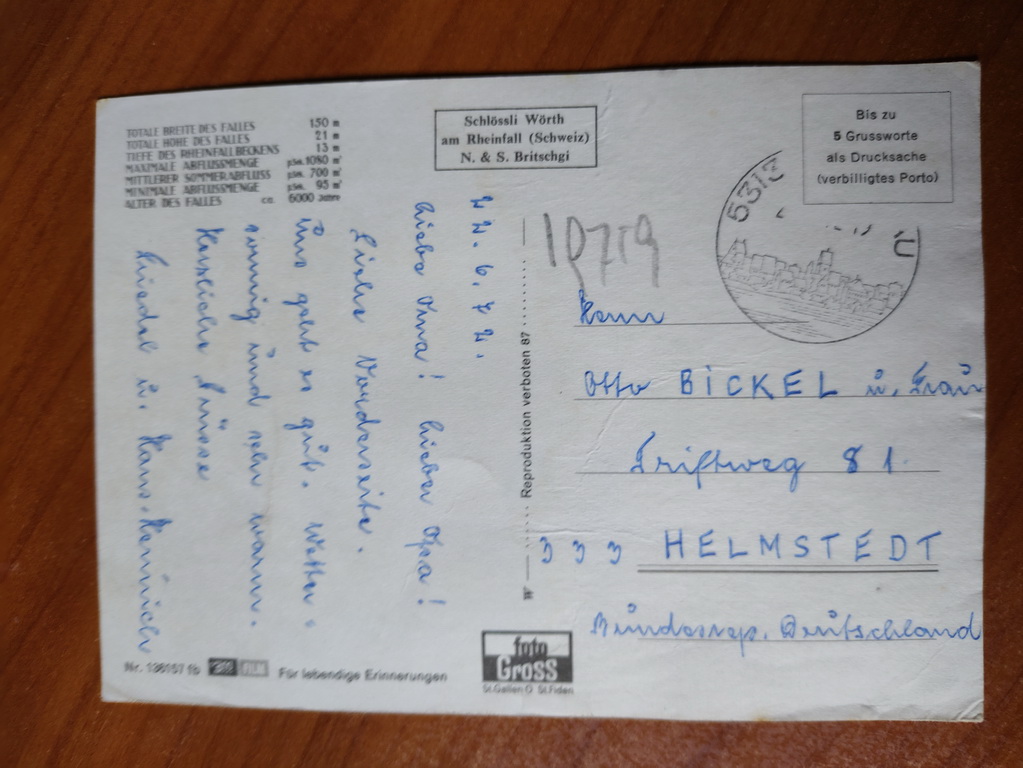 TOTALE BREITE DES FALLES 150 m
TOTALE HÖHE DES FALLES 21 m
TIEFE DES RHEINFALLBECKENS 13 m
MAXIMALE ABFLUSSMENGE pSek. 1080 m³
MITTLERER SOMMERABFLUSS pSek. 700 m³
MINIMALE ABFLUSSMENGE pSek. 95 m³
ALTER DES FALLES ca. 6000 Jahre
Schlössli Wörth
am Rheinfall (Schweiz)
N. & S. Britschgi
Bis zu
5 Grussworte
als Drucksache
(verbilligtes Porto)
22.6.72.
Liebe Oma! Lieber Opa!
Siehe Vorderseite.
Uns geht es gut. Wetter:
sonnig und sehr warm.
Herzliche Grüsse
Friedel u. Hans-Heinrich
W Reproduktion verboten 87
10719
Herrn
Otto BICKEL u. Frau
Triftweg 81.
333 HELMSTEDT
Bundesrep. Deutschland
Nr. 136157 fb
Für lebendige Erinnerungen
foto
Gross
St.Gallen O St.Fiden